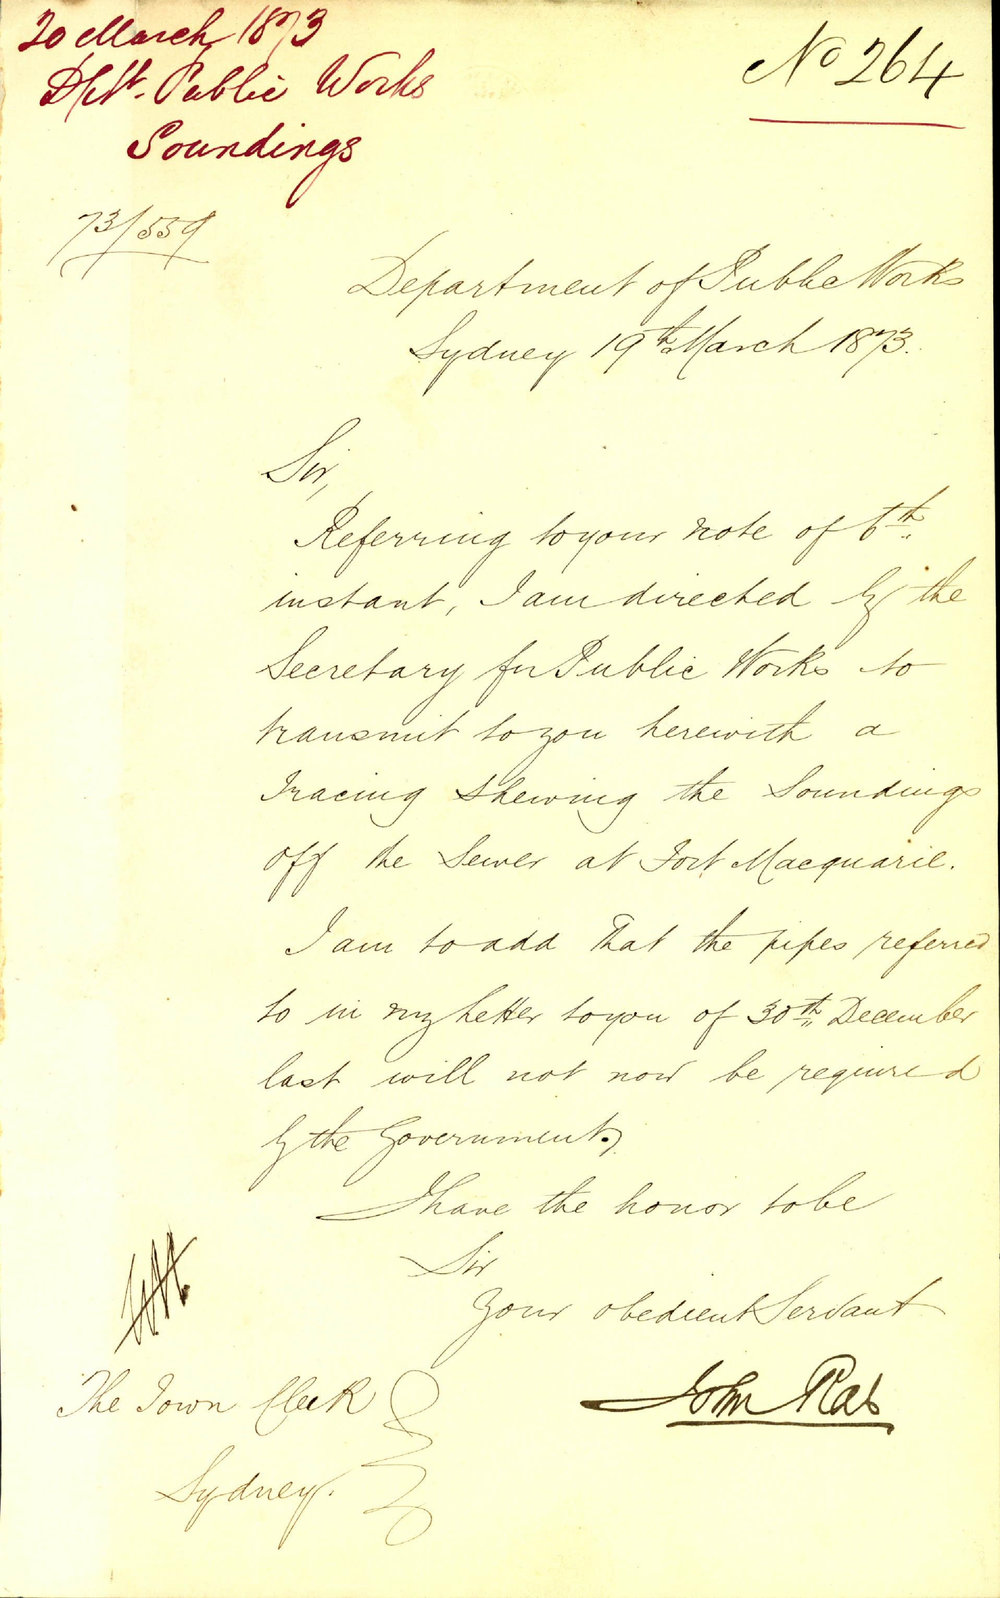 20 March 1873
Dept. Public Works
Soundings
No 264
73/559
Department of Public Works
Sydney 19th March 1873.
Sir,
Referring to your note of 6th
instant, I am directed by the
Secretary for Public Works to
transmit to you herewith a
Tracing shewing the Soundings
off the Sewer at Fort Macquarie.
I am to add that the pipes referred
to in my letter to you of 30th December
last will not now be required
by the Government.
I have the honor to be
Sir
Your obedient Servant
John Rae
The Town Clerk
Sydney.